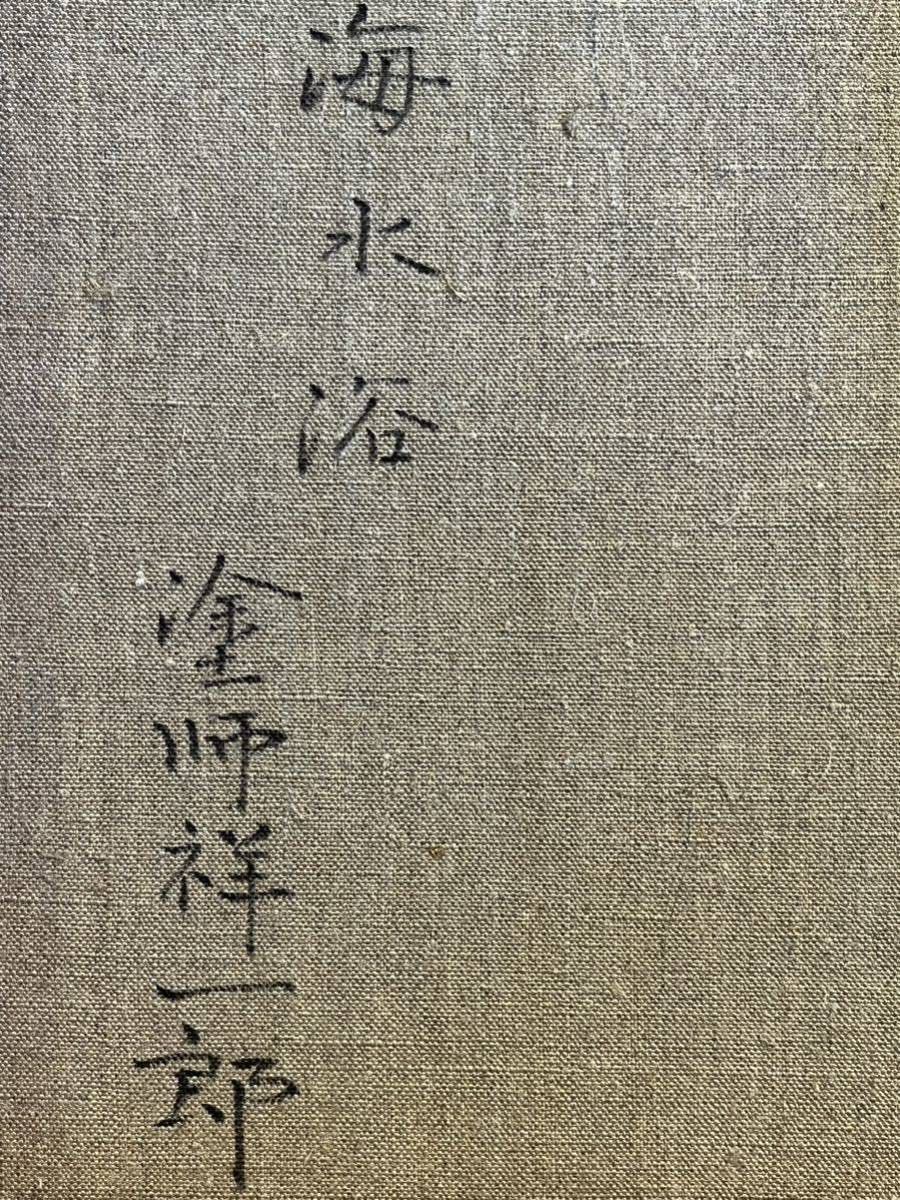 海水浴
塗師祥一郎